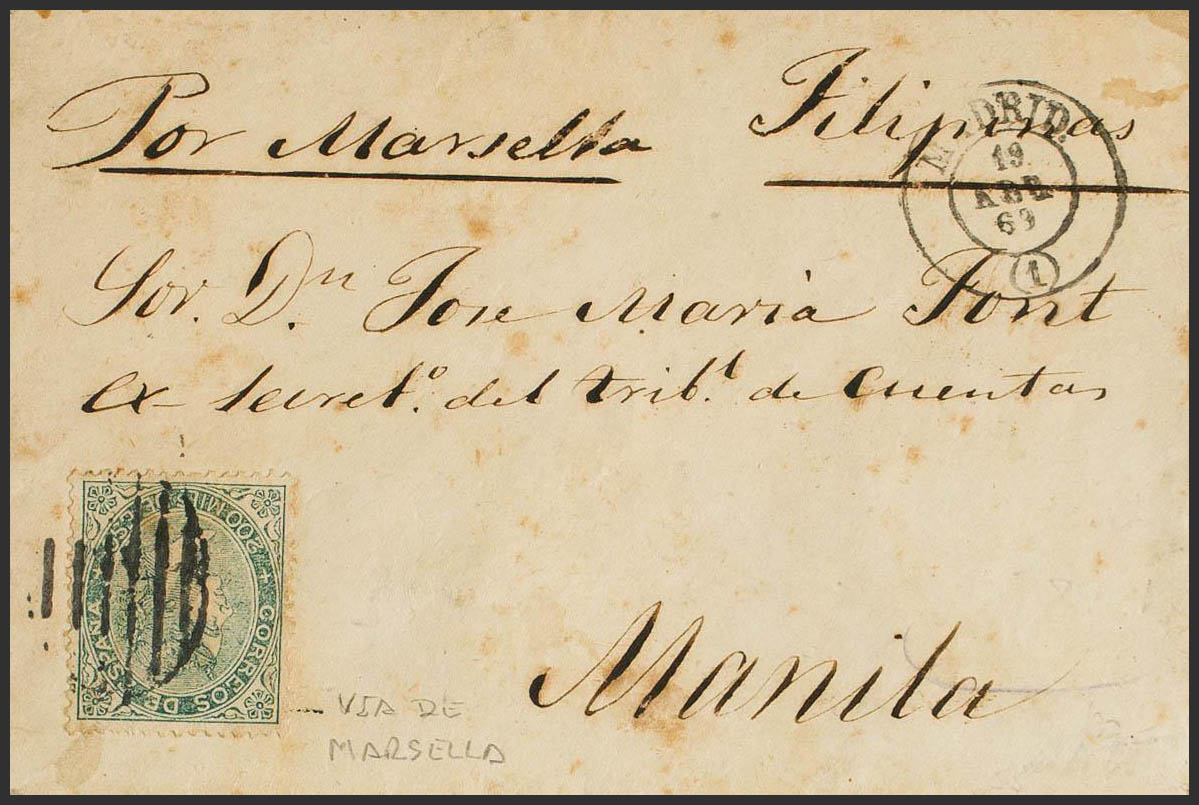 Por Marsella Filipinas
MADRID.
19
ABR
69
(1)
Sor. Dn Jose Maria Font
ex-secret.o del trib.l de cuentas
200 MILS DE ESCO * CORREOS DE ESPAÑA *
Manila
VIA DE
MARSELLA